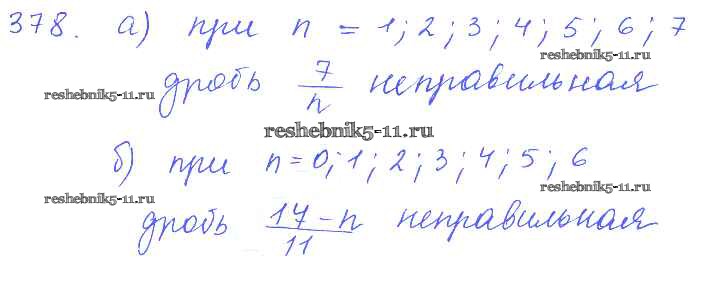 378. а) при n = 1; 2; 3; 4; 5; 6; 7
reshebnik5-11.ru
дробь 7/n неправильная
reshebnik5-11.ru
reshebnik5-11.ru
б) при n = 0; 1; 2; 3; 4; 5; 6
reshebnik5-11.ru
reshebnik5-11.ru
дробь 17-n/11 неправильная